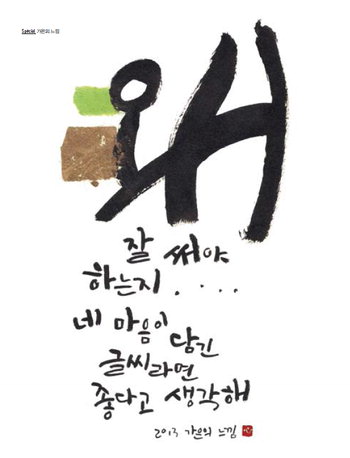 Special 가은의 느낌
왜
잘 써야
하는지....
네 마음이
담긴
글씨라면
좋다고 생각해
2013 가은의 느낌